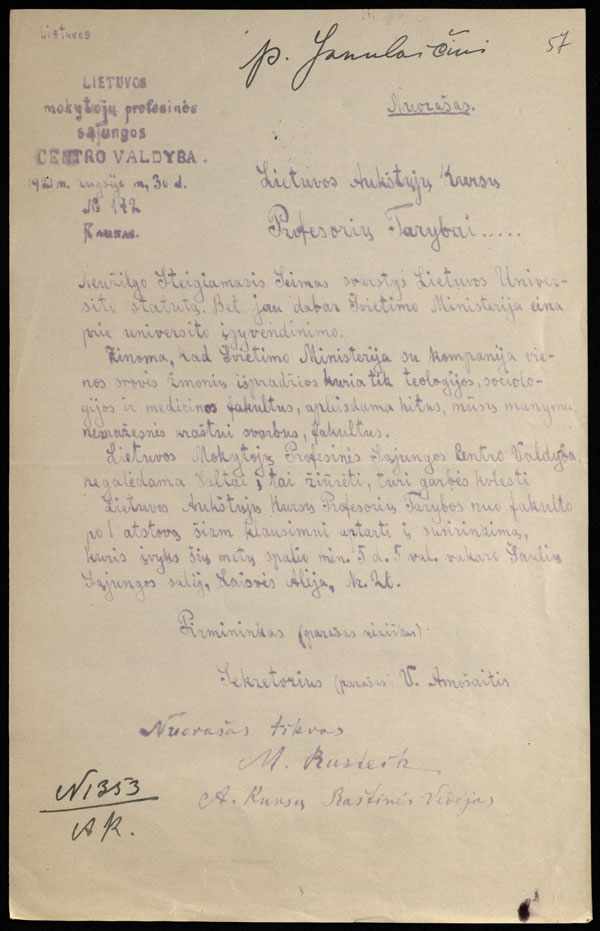 Lietuvos
p. Janulaičiui
57
LIETUVOS
mokytojų profesinės
sąjungos
CENTRO VALDYBA.
1921 m. rugsėjo m, 30 d.
№ 172
Kaunas.
Nuorašas.
Lietuvos Aukštųjų Kursų
Profesorių Tarybai.....
Neužilgo Steigiamasis Seimas svarstys Lietuvos Univer-
sito statutą. Bet jau dabar Švietimo Ministerija eina
prie universito įgyvendinimo.
Žinoma, kad Švietimo Ministerija su kompanija vie-
nos srovės žmonių išpradžios kuria tik teologijos, sociolo-
gijos ir medicinos fakultus, apleisdama kitus, mūsų manymu,
nemažesnės kraštui svarbus, fakultus.
Lietuvos Mokytojų Profesinės Sąjungos Centro Valdyba,
negalėdama šaltai į tai žiūrėti, turi garbės kviesti
Lietuvos Aukštųjų Kursų Profesorių Tarybos nuo fakulto
po 1 atstovą šiam klausimui aptarti į susirinkimą,
kuris įvyks šių metų spalio mėn. 5 d. 5 val. vakaro Šaulių
Sąjungos salėj, Laisvės Alėja, Nr.
Pirmininkas (parašas neiškus)
Sekretorius (parašas) V. Amošaitis
Nuorašas tikras
M.
A. Kursų Raštinės Vedėjas
N1353
AK.